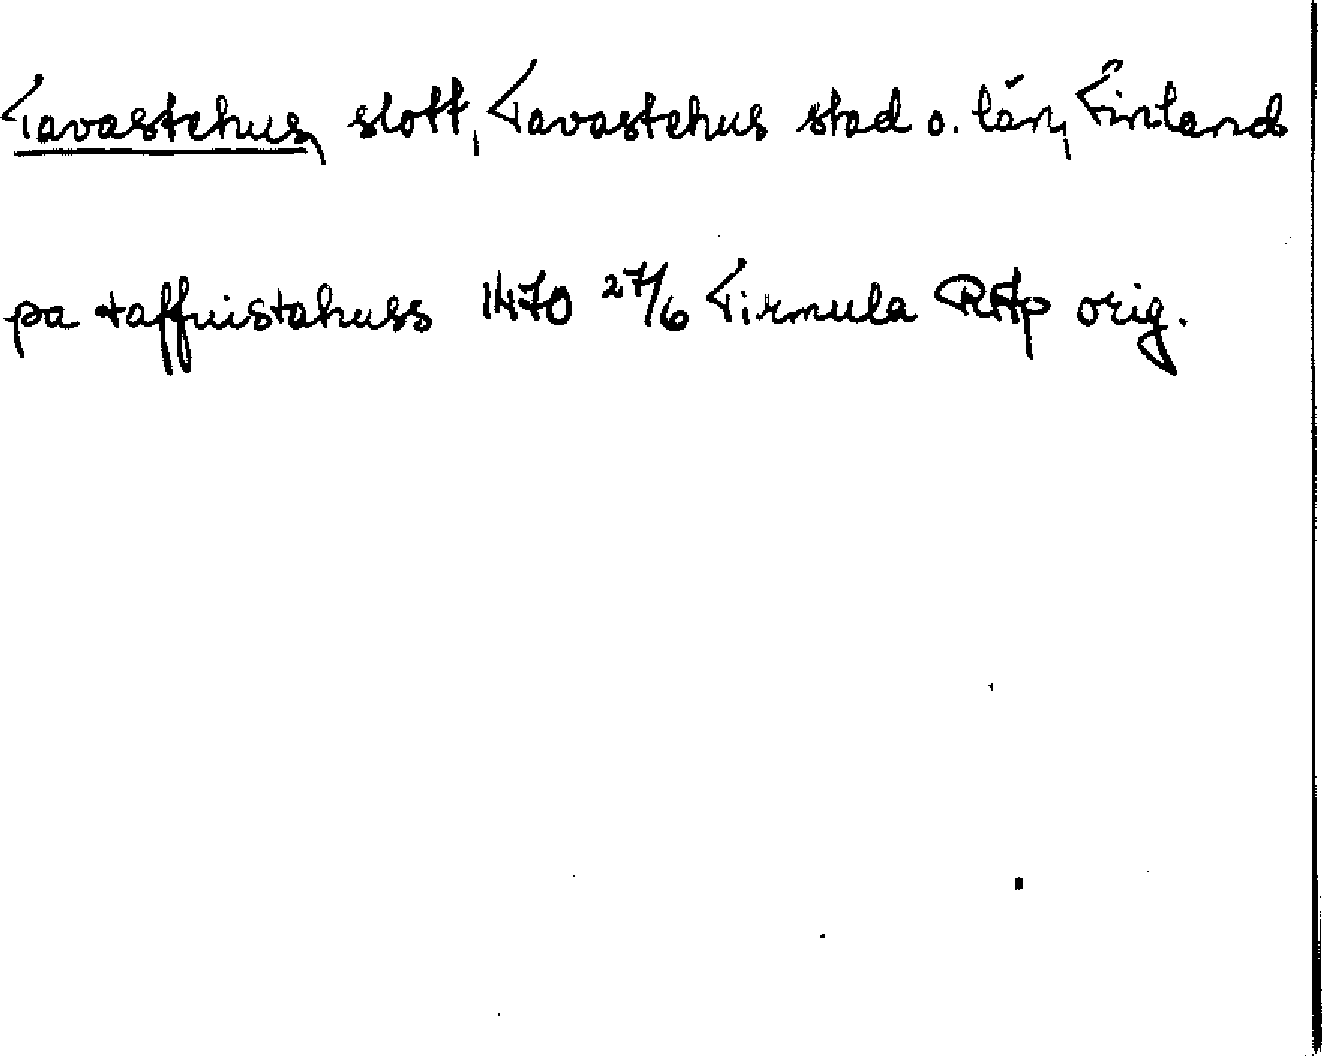 Tavastehus, slott, Tavastehus stad o. län, Finland
pa taffuistahuss 1470 27/6 Tirmula RAp orig.